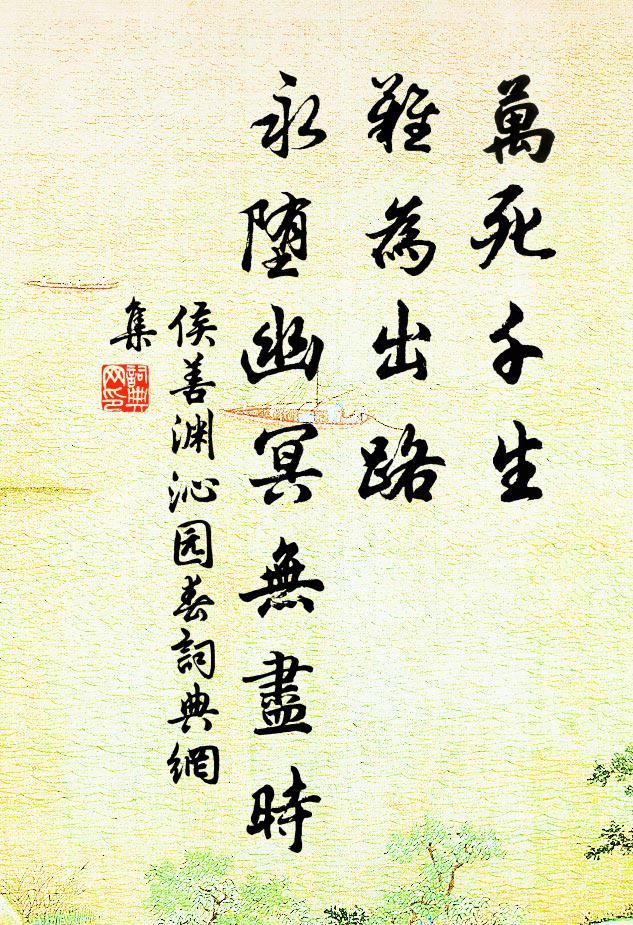 萬死千生
難為出路
永堕幽冥無盡時
侯善渊沁园春詞典網
集
詞典
网印